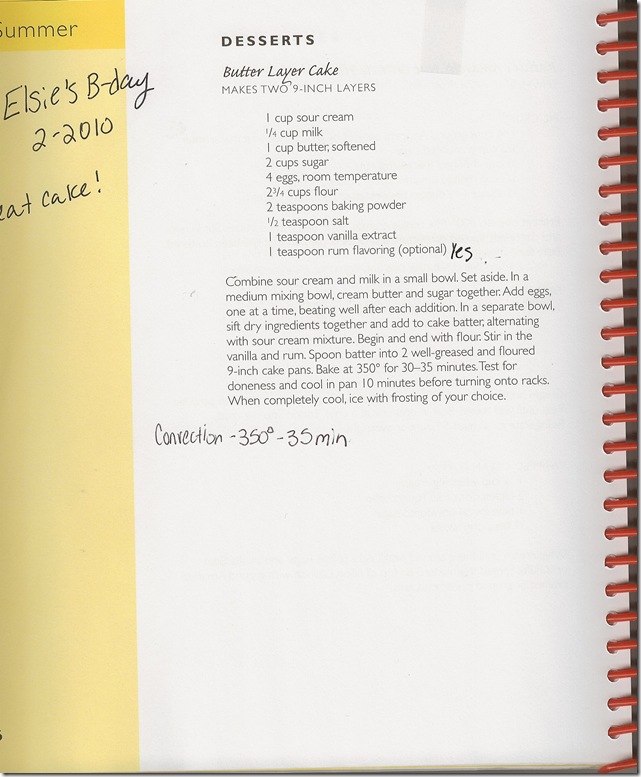 Summer
Elsie's B-day
2-2010
eat cake!
DESSERTS
Butter Layer Cake
MAKES TWO 9-INCH LAYERS
1 cup sour cream
1/4 cup milk
1 cup butter, softened
2 cups sugar
4 eggs, room temperature
2 3/4 cups flour
2 teaspoons baking powder
1/2 teaspoon salt
1 teaspoon vanilla extract
1 teaspoon rum flavoring (optional) Yes
Combine sour cream and milk in a small bowl. Set aside. In a
medium mixing bowl, cream butter and sugar together. Add eggs,
one at a time, beating well after each addition. In a separate bowl,
sift dry ingredients together and add to cake batter, alternating
with sour cream mixture. Begin and end with flour. Stir in the
vanilla and rum. Spoon batter into 2 well-greased and floured
9-inch cake pans. Bake at 350° for 30–35 minutes. Test for
doneness and cool in pan 10 minutes before turning onto racks.
When completely cool, ice with frosting of your choice.
Convection - 350° - 35 min